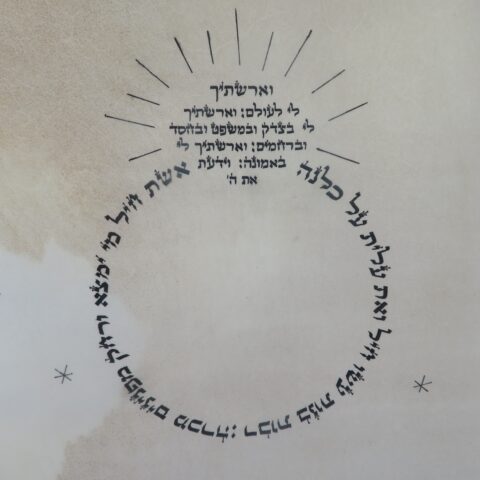 וארשתיך
לי לעולם: וארשתיך
לי בצדק ובמשפט ובחסד
וברחמים: וארשתיך לי
באמונה: וידעת
את ה'
אשת חיל מי ימצא ורחק מפנינים מכרה: רבות בנות עשו חיל ואת עלית על כלנה